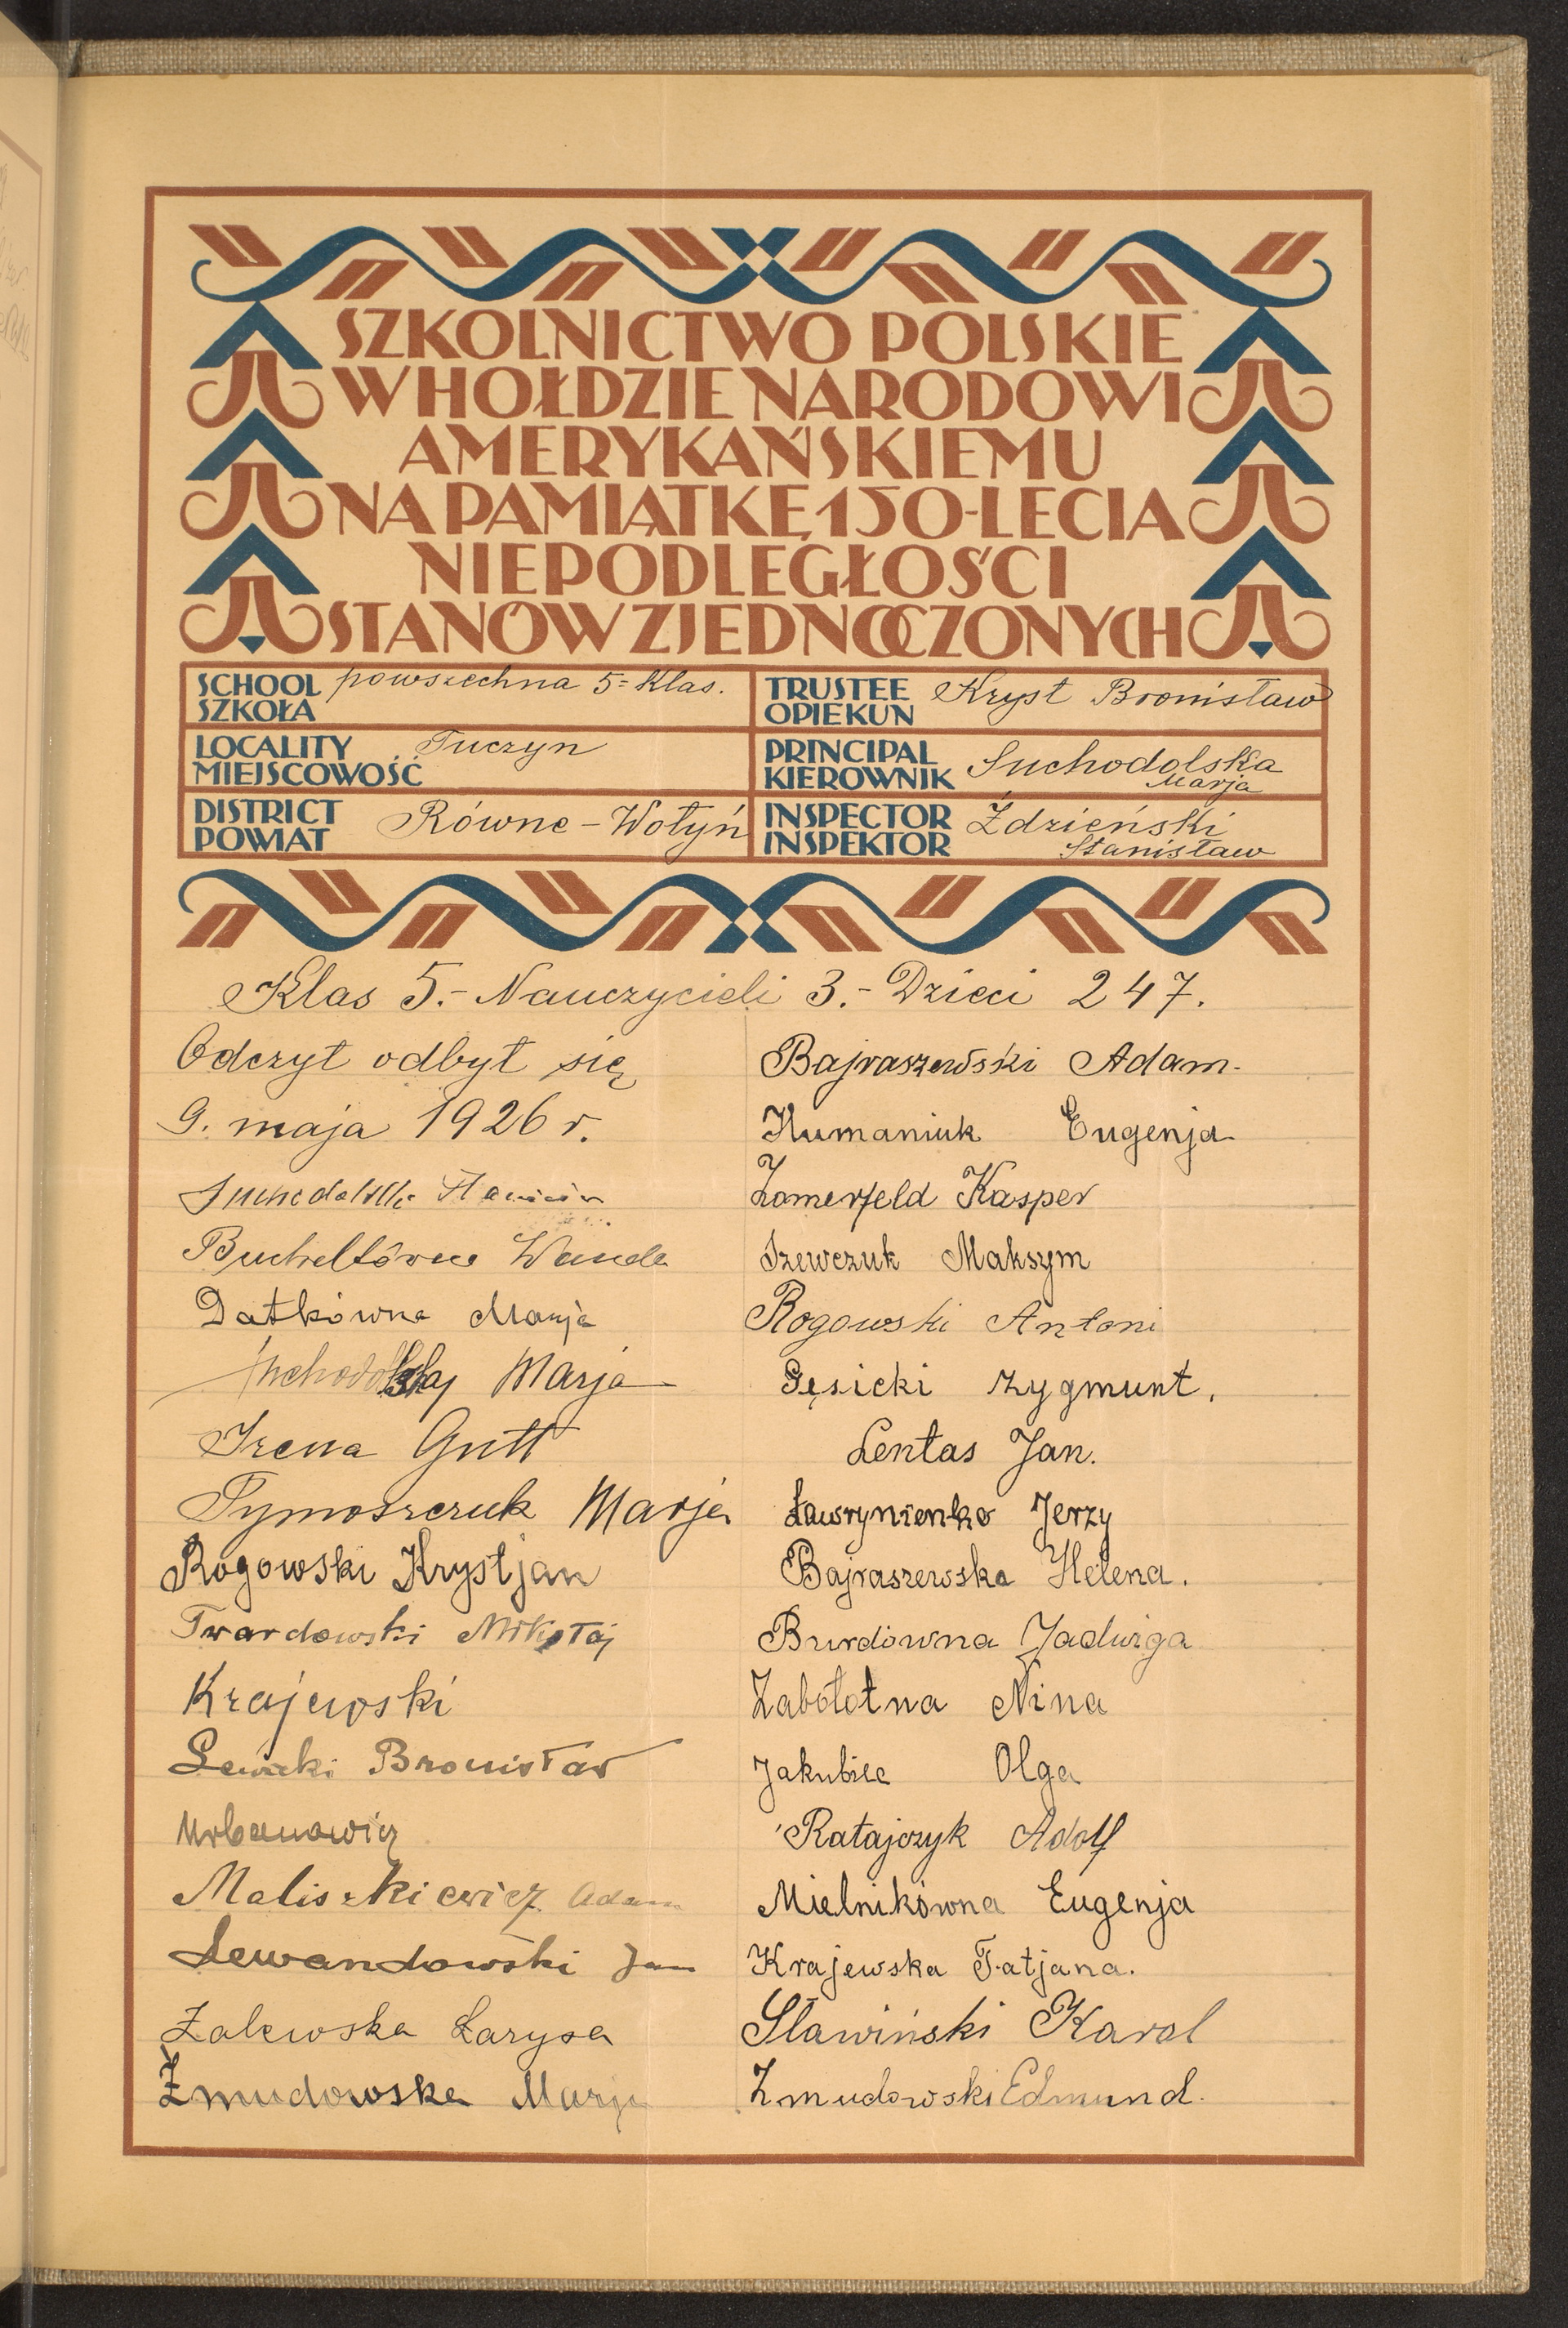 SZKOLNICTWO POLSKIE
W HOŁDZIE NARODOWI
AMERYKAŃSKIEMU
NA PAMIĄTKĘ 150-LECIA
NIEPODLEGŁOŚCI
STANÓW ZJEDNOCZONYCH
SCHOOL powszechna 5=klas.
SZKOŁA
TRUSTEE Kryst Bronisław
OPIEKUN
LOCALITY Tuczyn
MIEJSCOWOŚĆ
PRINCIPAL Suchodolska
KIEROWNIK Marja
DISTRICT Równe-Wołyń
POWIAT
INSPECTOR Ździeński
INSPEKTOR Stanisław
Klas 5.- Nauczycieli 3.- Dzieci 247.
Odczyt odbył się
9. maja 1926 r.
Bucheltówna Wanda
Datkówna Marja
Suchodolska Marja
Irena Gutt
Tymoszczuk Marja
Rogowski Krystjan
Twardowski Mikołaj
Krajewski
Lewicki Bronisław
Urbanowicz
Maliszkiewicz Adam
Lewandowski Jan
Zalewska Łarysa
Żmudowska Marja
Bajraszewski Adam.
Humaniuk Eugenja
Zomerfeld Kasper
Szewczuk Maksym
Rogowski Antoni
Gęsicki Zygmunt.
Lentas Jan.
Ławrynienko Jerzy
Bajraszewska Helena.
Burdówna Jadwiga
Zabołotna Nina
Jakubiec Olga
Ratajczyk Adolf
Mielnikówna Eugenja
Krajewska Tatjana.
Sławiński Karol
Zmudowski Edmund.